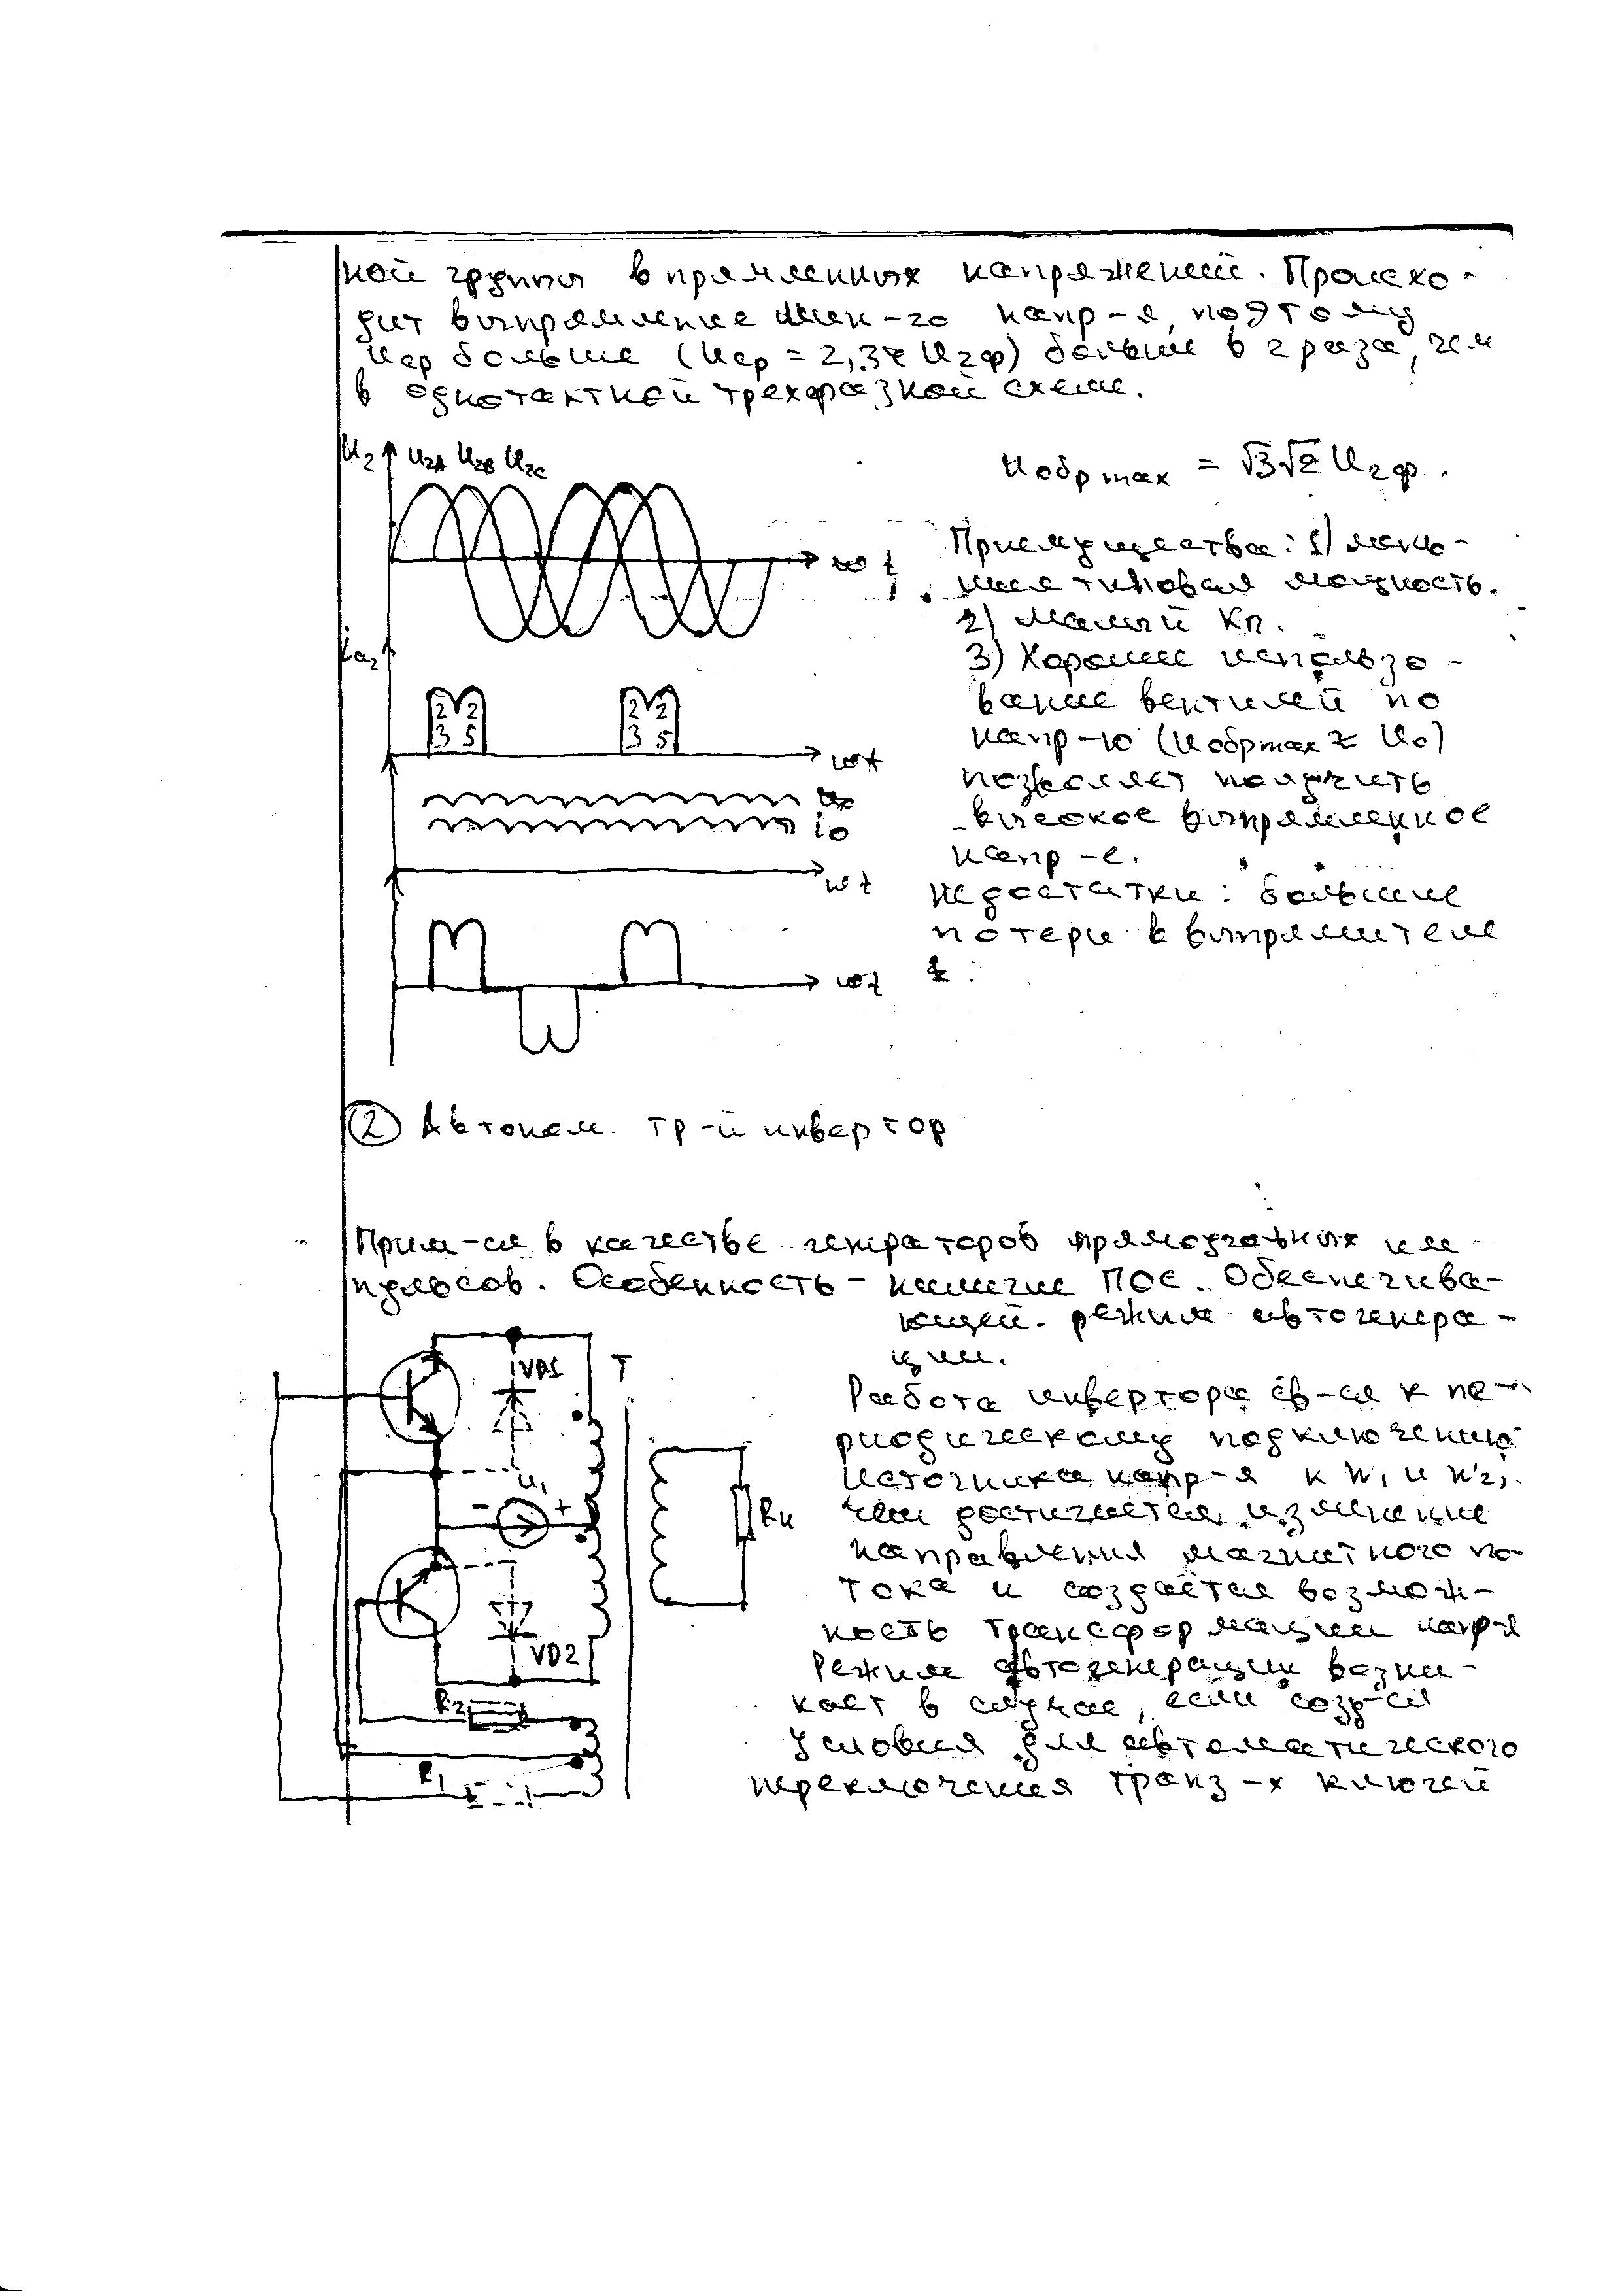 ной группы выпрямленных напряжений. Происхо-
дит выпрямление лин-го напр-я, поэтому
Uср больше (Uср = 2,34 U2ф) больше в 2 раза, чем
в однотактной трехфазной схеме.
U2 U2A U2B U2C
Uобр max = √3√2 U2ф.
ωt
Преимущества: 1) мень-
шая типовая мощность.
2) Малый Кп.
ia2
3) Хорошее использо-
вание вентилей по
2 2 2 2
3 5 3 5
напр-ю (Uобрmax ≈ U0)
ωt
позволяет получить
U0
высокое выпрямленное
i0
напр-е.
ωt
Недостатки: большие
потери в выпрямителе
ωt
② Автоном. тр-й инвертор
Прим-ся в качестве генераторов прямоугольных им-
пульсов. Особенность - наличие ПОС. Обеспечива-
ющей режим автогенера-
ции.
VD1 T
Работа инвертора св-ся к пе-
риодическому подключению
источника напр-я к W1 и W2,
U1
- +
Rн
чем достигается изменение
направления магнитного по-
тока и создаётся возмож-
ность трансформации напр-я
VD2
Режим автогенерации возни-
кает в случае, если созд-ся
R2
условия для автоматического
R1
переключения транз-х ключей